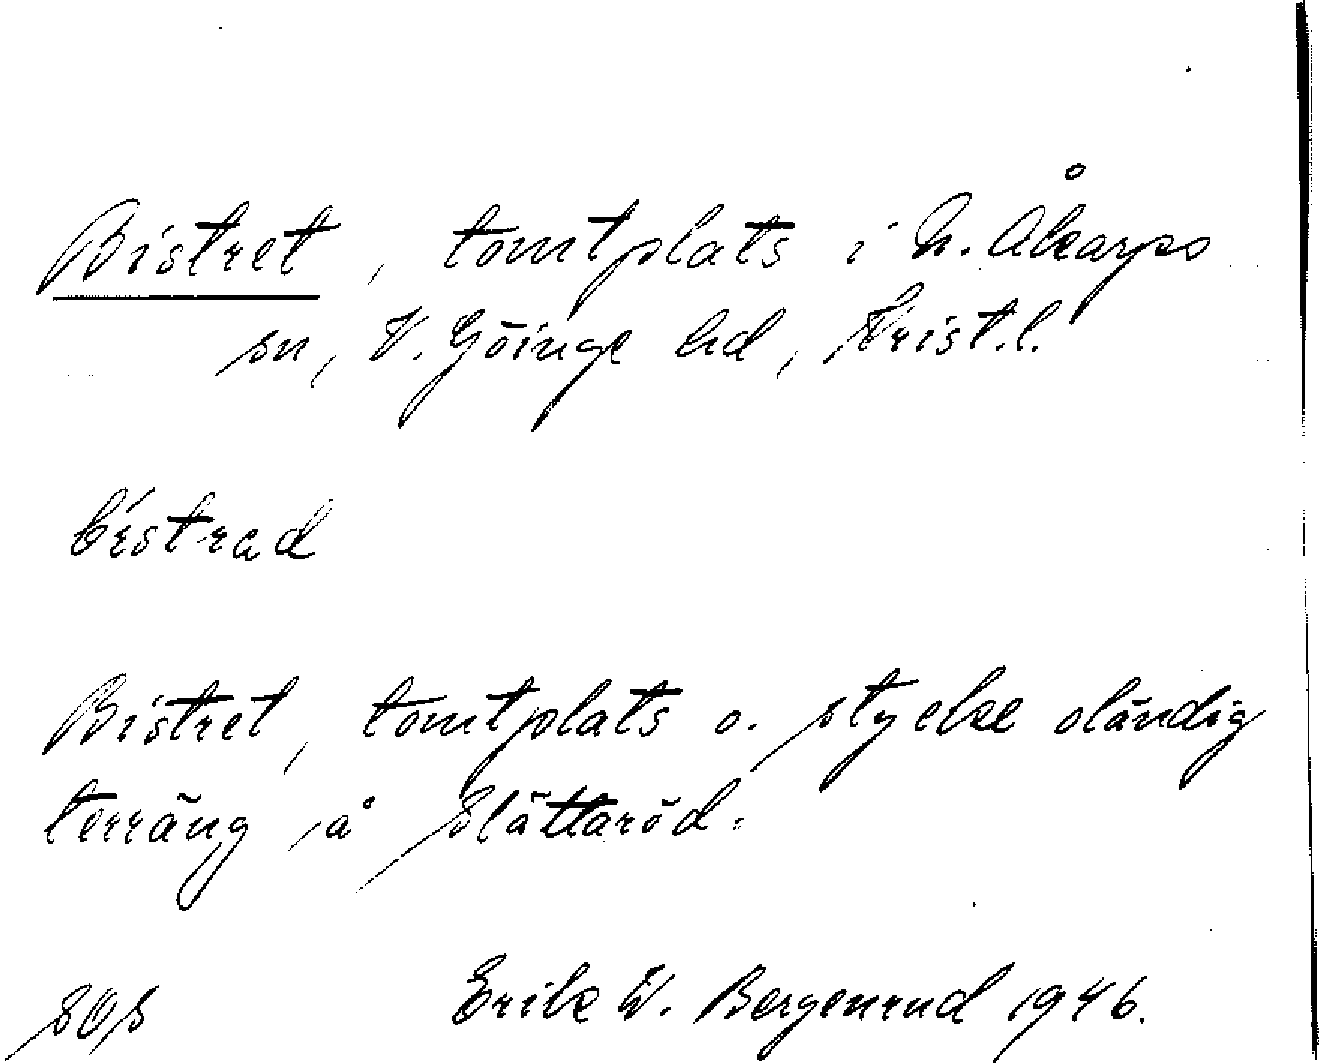 Bistret, tomtplats i N. Åkarps
sn, V. Göinge hd, Krist.l.
bistrad
Bistret, tomtplats o. stycke oländig
terräng å Slättaröd.
SOS Erik W. Bergenrud 1946.